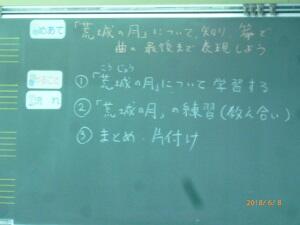 めあて 「荒城の月」について知り、箏で
曲の最後まで表現しよう
こう じょう
①「荒城の月」について学習する
②「荒城の月」の練習(教え合い)
③まとめ・片付け
2018/6/8